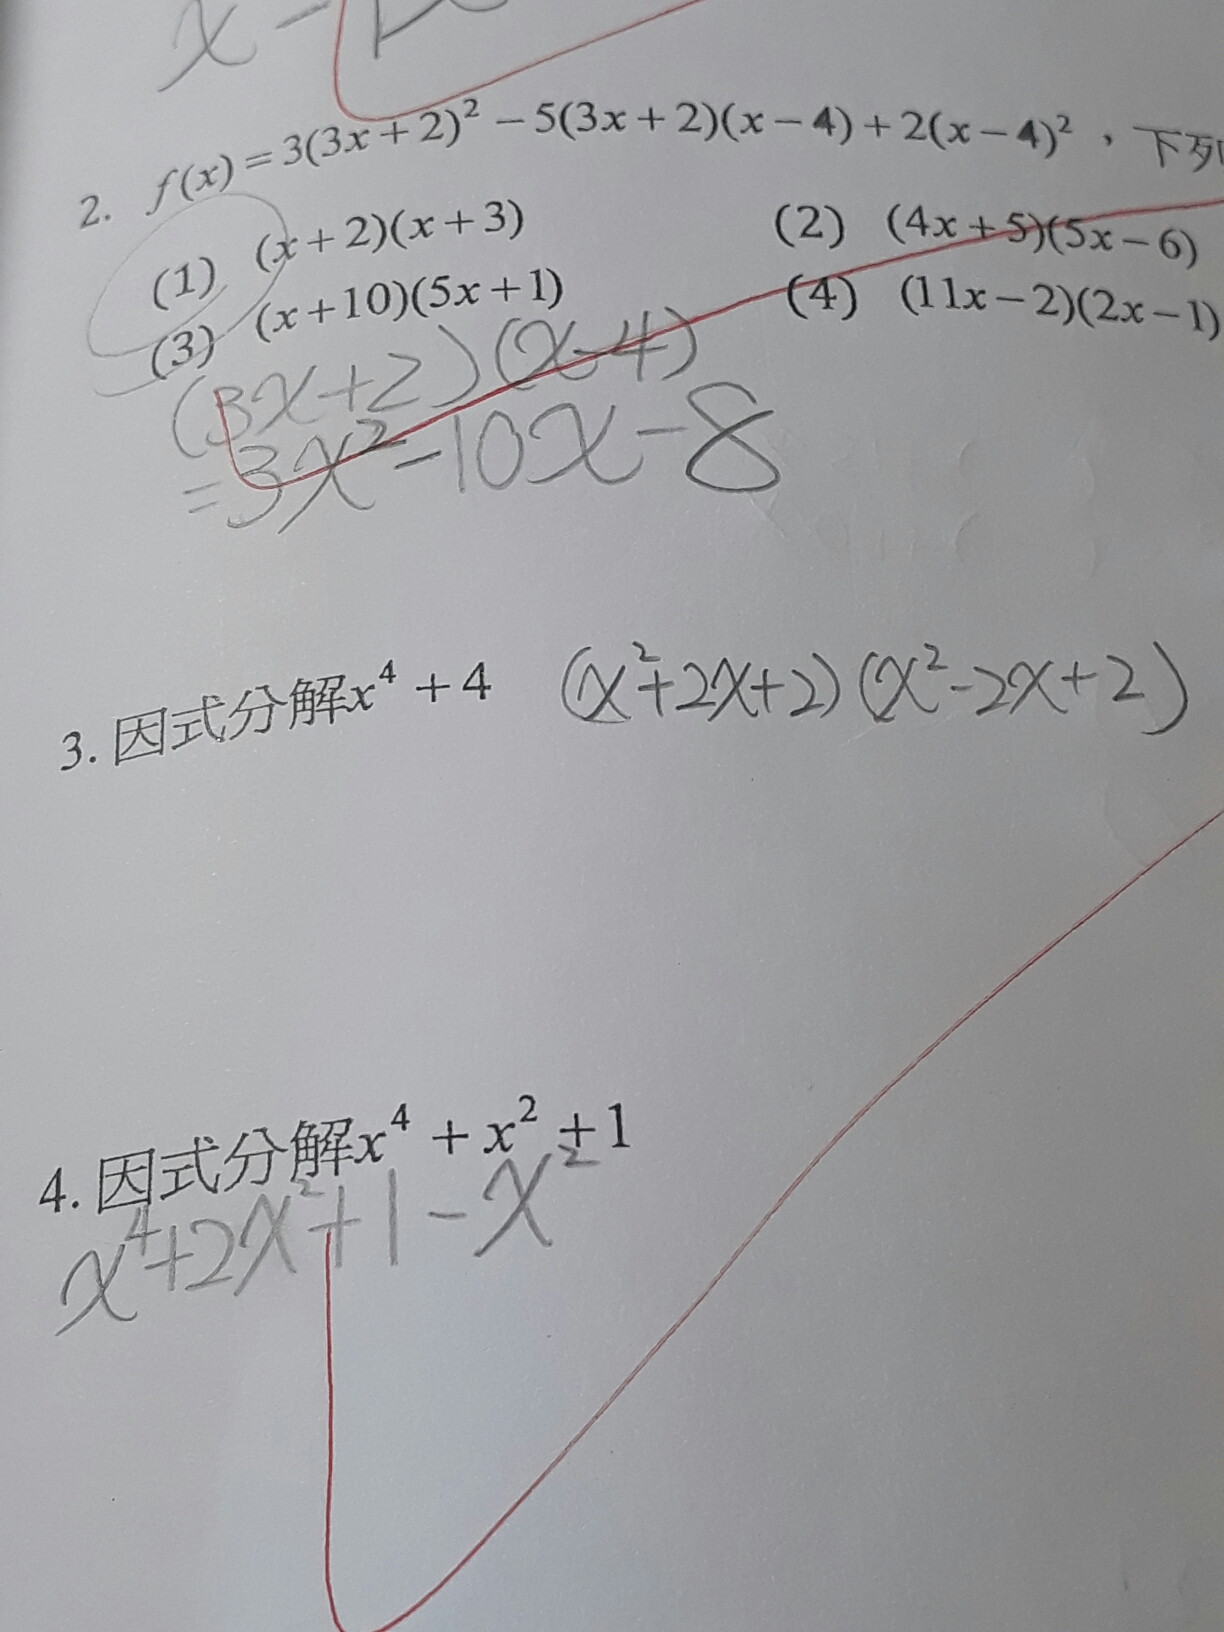 x -
2. f(x) = 3(3x + 2)² − 5(3x + 2)(x − 4) + 2(x − 4)²，下列
(1) (x + 2)(x + 3) (2) (4x + 5)(5x − 6)
(3) (x + 10)(5x + 1) (4) (11x − 2)(2x − 1)
(3x+2)(x-4)
=3x²-10x-8
3. 因式分解x⁴ + 4 (x²+2x+2)(x²-2x+2)
4. 因式分解x⁴ + x² + 1
x⁴+2x²+1-x²